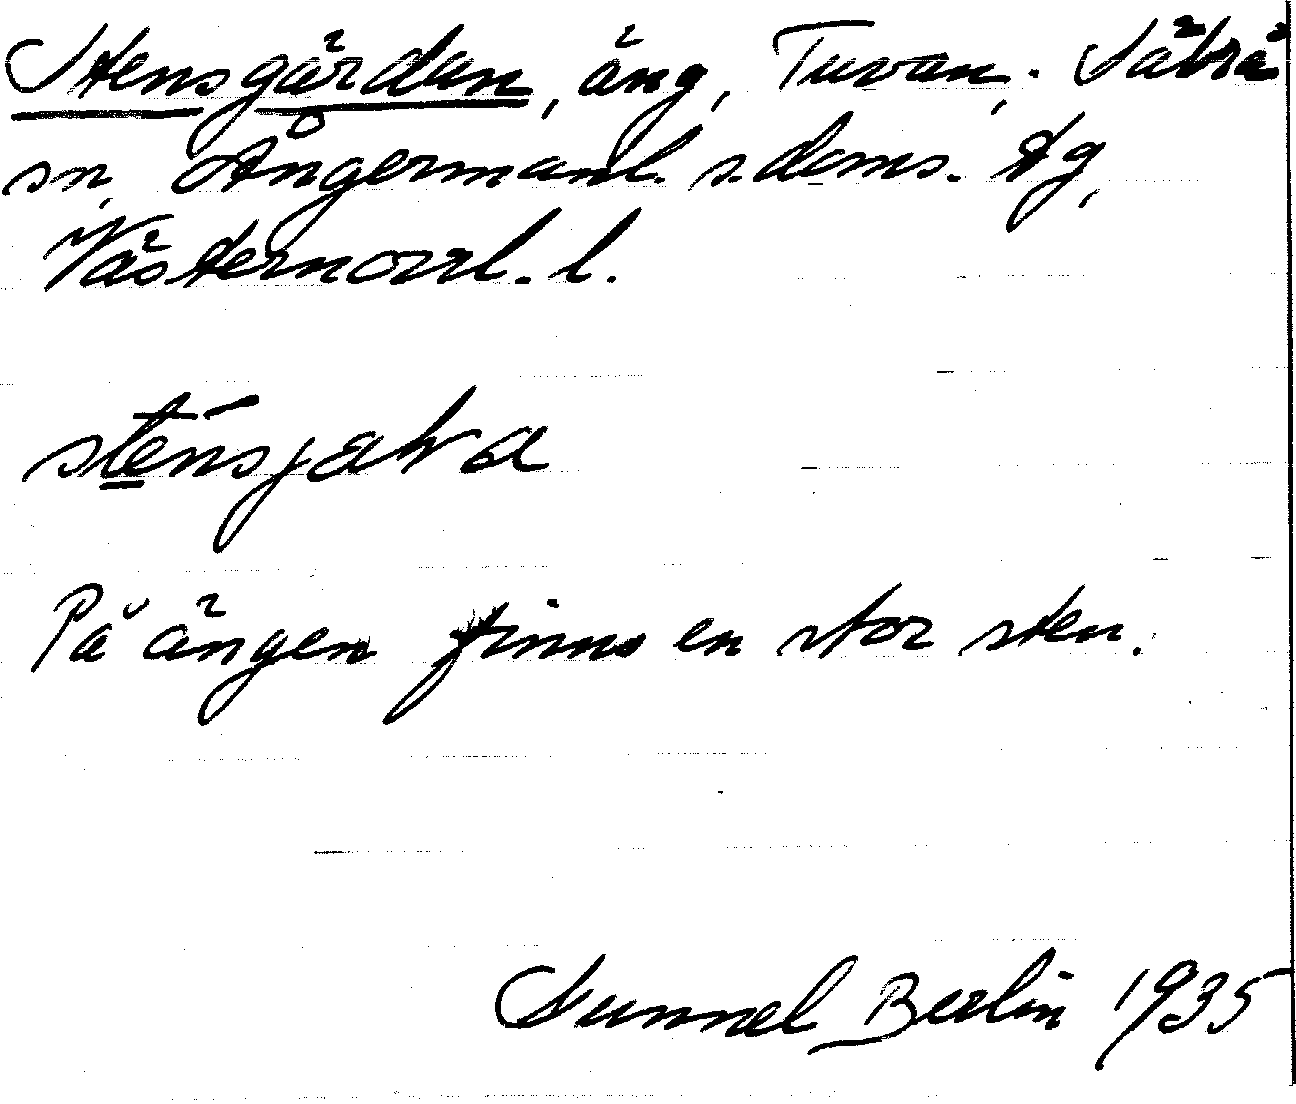 Stensgärdan, äng, Tuvan, Säbrå
sn, Ångermanl. s. doms. tg,
Västernorrl. l.
På ängen finns en stor sten.
Gunnel Berlin 1935